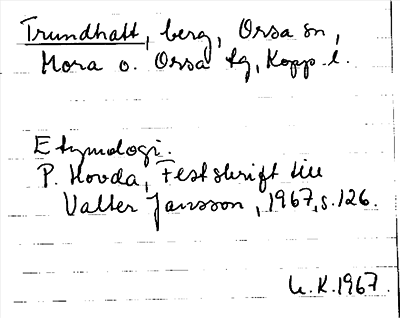 Trundhatt, berg, Orsa sn,
Mora o. Orsa tg, Kopp. l.
Etymologi.
P. Hovda, Festskrift till
Valter Jansson, 1967, s. 126.
L. K. 1967.